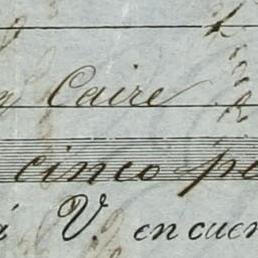 Caire
cinco pe
á V. en cuen